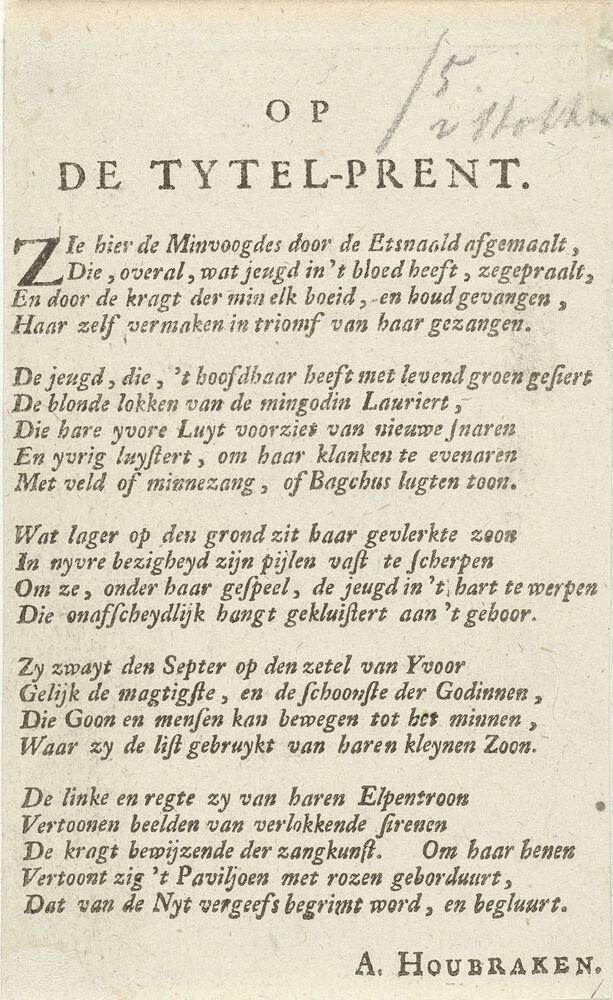 15
OP
DE TYTEL-PRENT.
ZIe hier de Minvoogdes door de Etsnaald afgemaalt,
Die, overal, wat jeugd in 't bloed heeft, zegepraalt,
En door de kragt der min elk boeid, en houd gevangen,
Haar zelf vermaken in triomf van haar gezangen.
De jeugd, die, 't hoofdhaar heeft met levend groen gesiert
De blonde lokken van de mingodin Lauriert,
Die hare yvore Luyt voorziet van nieuwe snaren
En yvrig luystert, om haar klanken te evenaren
Met veld of minnezang, of Bagchus lugten toon.
Wat lager op den grond zit haar gevlerkte zoon
In nyvre bezigheyd zijn pijlen vast te scherpen
Om ze, onder haar gespeel, de jeugd in 't hart te werpen
Die onafscheydlijk hangt gekluistert aan 't gehoor.
Zy zwayt den Septer op den zetel van Yvoor
Gelijk de magtigste, en de schoonste der Godinnen,
Die Goon en mensen kan bewegen tot het minnen,
Waar zy de list gebruykt van haren kleynen Zoon.
De linke en regte zy van haren Elpentroon
Vertoonen beelden van verlokkende sirenen
De kragt bewijzende der zangkunst. Om haar henen
Vertoont zig 't Paviljoen met rozen geborduurt,
Dat van de Nyt vergeefs begrimt word, en begluurt.
A. HOUBRAKEN.